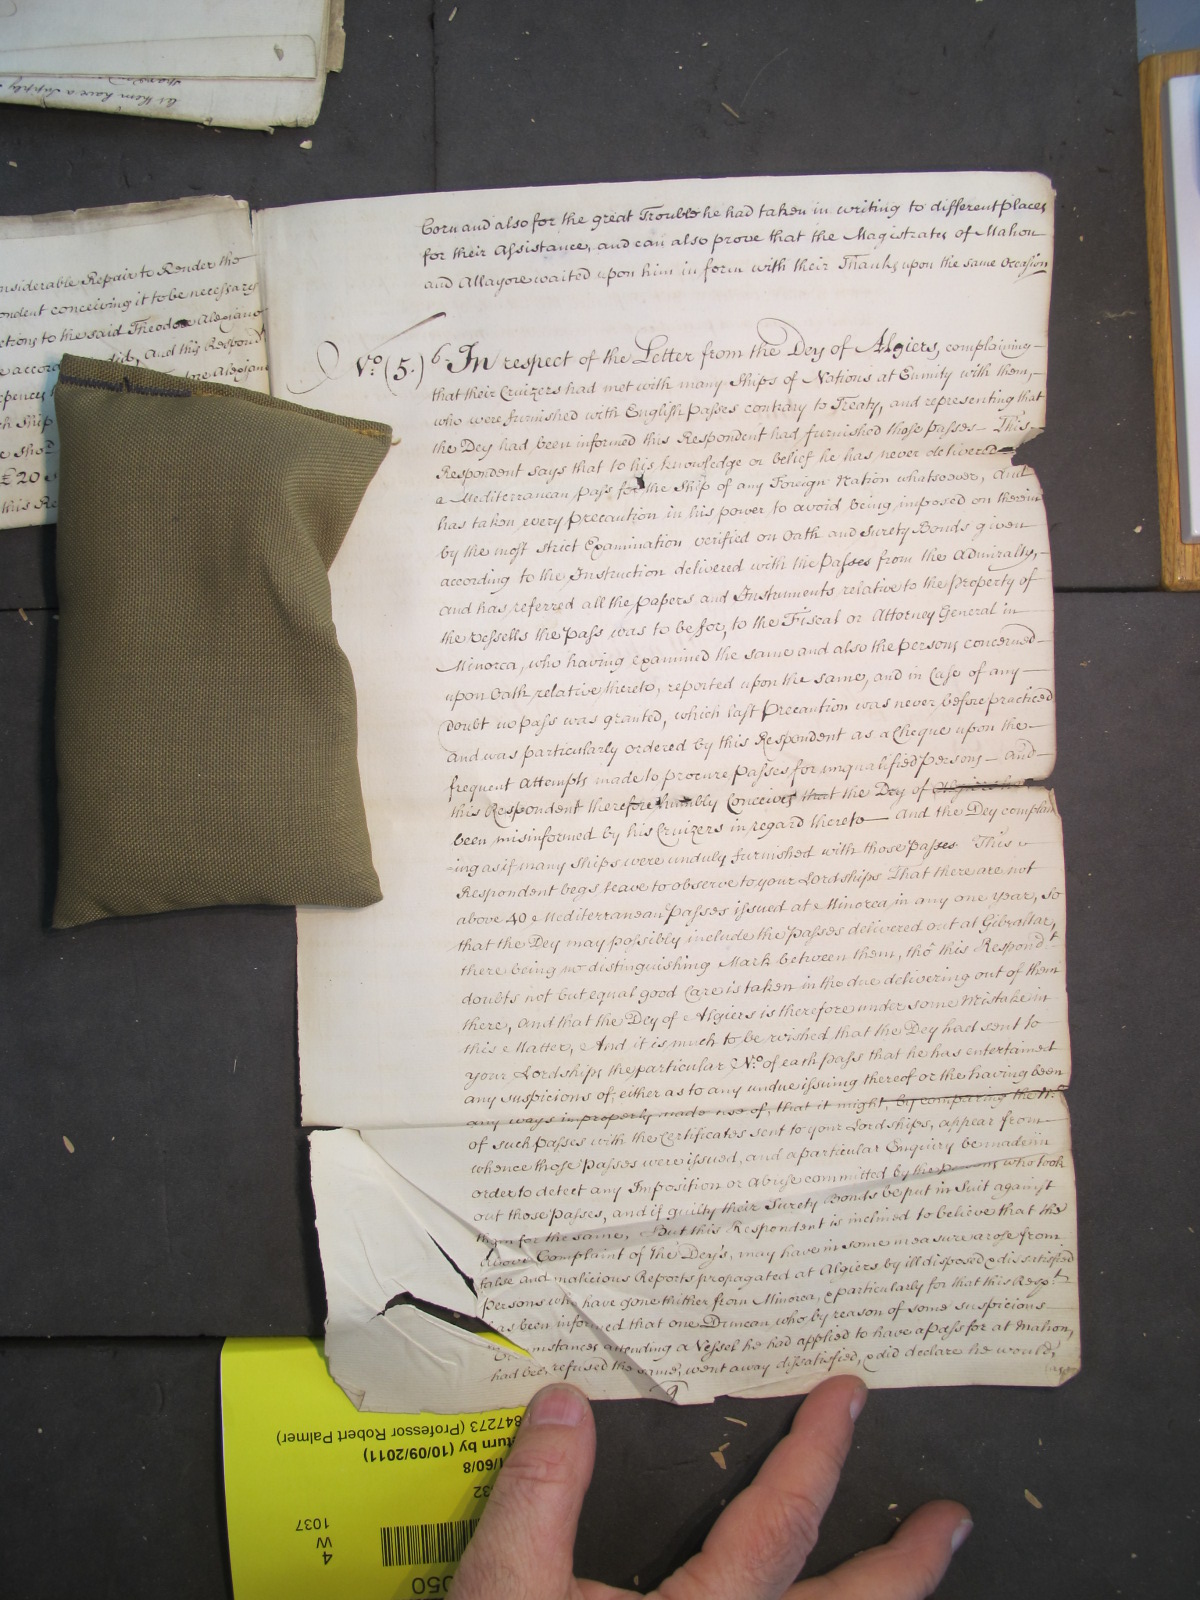 as them have a Supply
nsiderable Repair to Render the
ondent conceiving it to be necessary
ctions to the said Theodore Alexiano
did, And this Respond
e accord
tore Alexian
xpences
h Ship
e shot
£20
this Re
Corn and also for the great Trouble he had taken in writing to different places
for their Assistance, and can also prove that the Magistrates of Mahon
and Allayore waited upon him in form with their Thanks upon the same Occasion
No. (5.) 6. In respect of the Letter from the Dey of Algiers, complaining
that their Cruizers had met with many Ships of Nations at Enmity with them,
who were furnished with English Passes contrary to Treaty, and representing that
the Dey had been informed this Respondent had furnished those passes — This
Respondent says that to his knowledge or belief he has never delivered
a Mediterranean pass for the Ship of any Foreign Nation whatsoever, And
has taken every Precaution in his power to avoid being imposed on therein
by the most strict Examination verified on Oath and Surety Bonds given
according to the Instruction delivered with the Passes from the Admiralty,
and has referred all the papers and Instruments relative to the Property of
the Vessells the Pass was to be for, to the Fiscal or Attorney General in
Minorca, who having examined the same and also the persons concerned
upon Oath relative thereto, reported upon the same, and in Case of any
doubt no pass was granted, which last Precaution was never before practiced
and was particularly ordered by this Respondent as a Cheque upon the
frequent Attempts made to procure Passes for unqualified Persons — And
this Respondent therefore humbly Conceives that the Dey of Algiers has
been misinformed by his Cruizers in regard thereto — And the Dey complain
=ing as if many Ships were unduly furnished with those Passes This
Respondent begs leave to observe to your Lordships That there are not
above 40 Mediterranean Passes issued at Minorca in any one year, so
that the Dey may possibly include the Passes delivered out at Gibraltar,
there being no distinguishing Mark between them, tho' this Respondt.
doubts not but equal good Care is taken in the due delivering out of them
there, and that the Dey of Algiers is therefore under some Mistake in
this Matter, And it is much to be wished that the Dey had sent to
your Lordships the particular No. of each Pass that he has entertained
any suspicions of, either as to any undue issuing thereof or the having been
any ways improperly made use of, that it might, by comparing the No.
of such Passes with the Certificates sent to your Lordships, appear from
whence those Passes were issued, and a particular Enquiry be made in
order to detect any Imposition or Abuse committed by the Persons who took
out those Passes, and if guilty their Surety Bonds be put in Suit against
them for the same, But this Respondent is inclined to believe that the
above Complaint of the Dey's, may have in some measure arose from
false and malicious Reports propagated at Algiers by ill disposed & dissatisfied
persons who have gone thither from Minorca, & particularly for that this Respt.
has been informed that one Duncan who by reason of some suspicious
Circumstances attending a Vessel he had applied to have a Pass for at Mahon,
had been refused the same, went away dissatisfied, & did declare he would,
9
847273 (Professor Robert Palmer)
turn by (10/09/2011)
1/60/8
32
1037
W
4
050